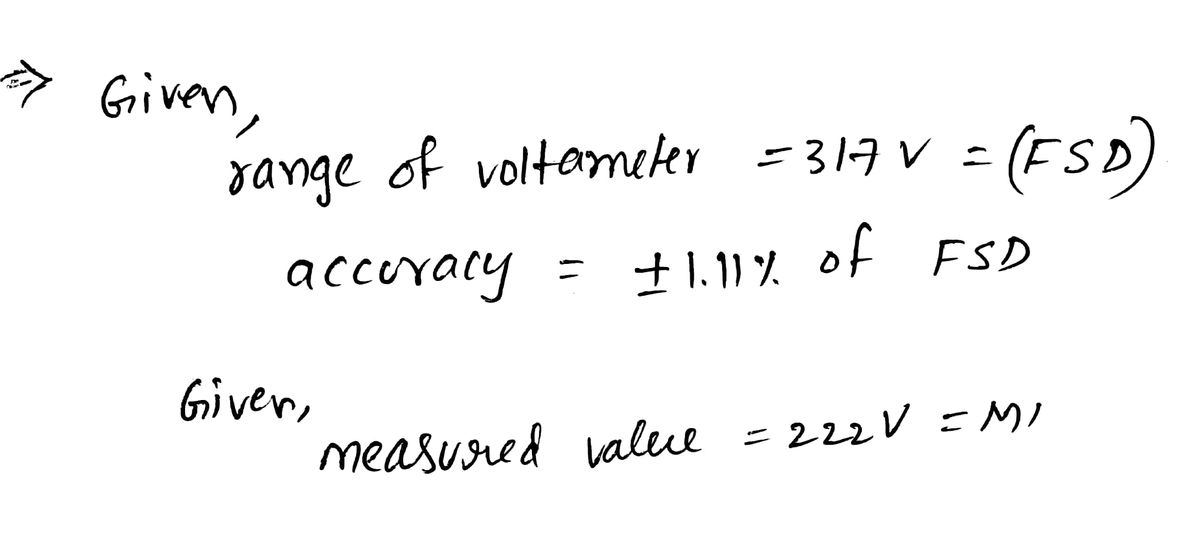 ⇒ Given,
range of voltameter = 317 V = (FSD)
accuracy = ± 1.11% of FSD
Given,
measured value = 222 V = M1